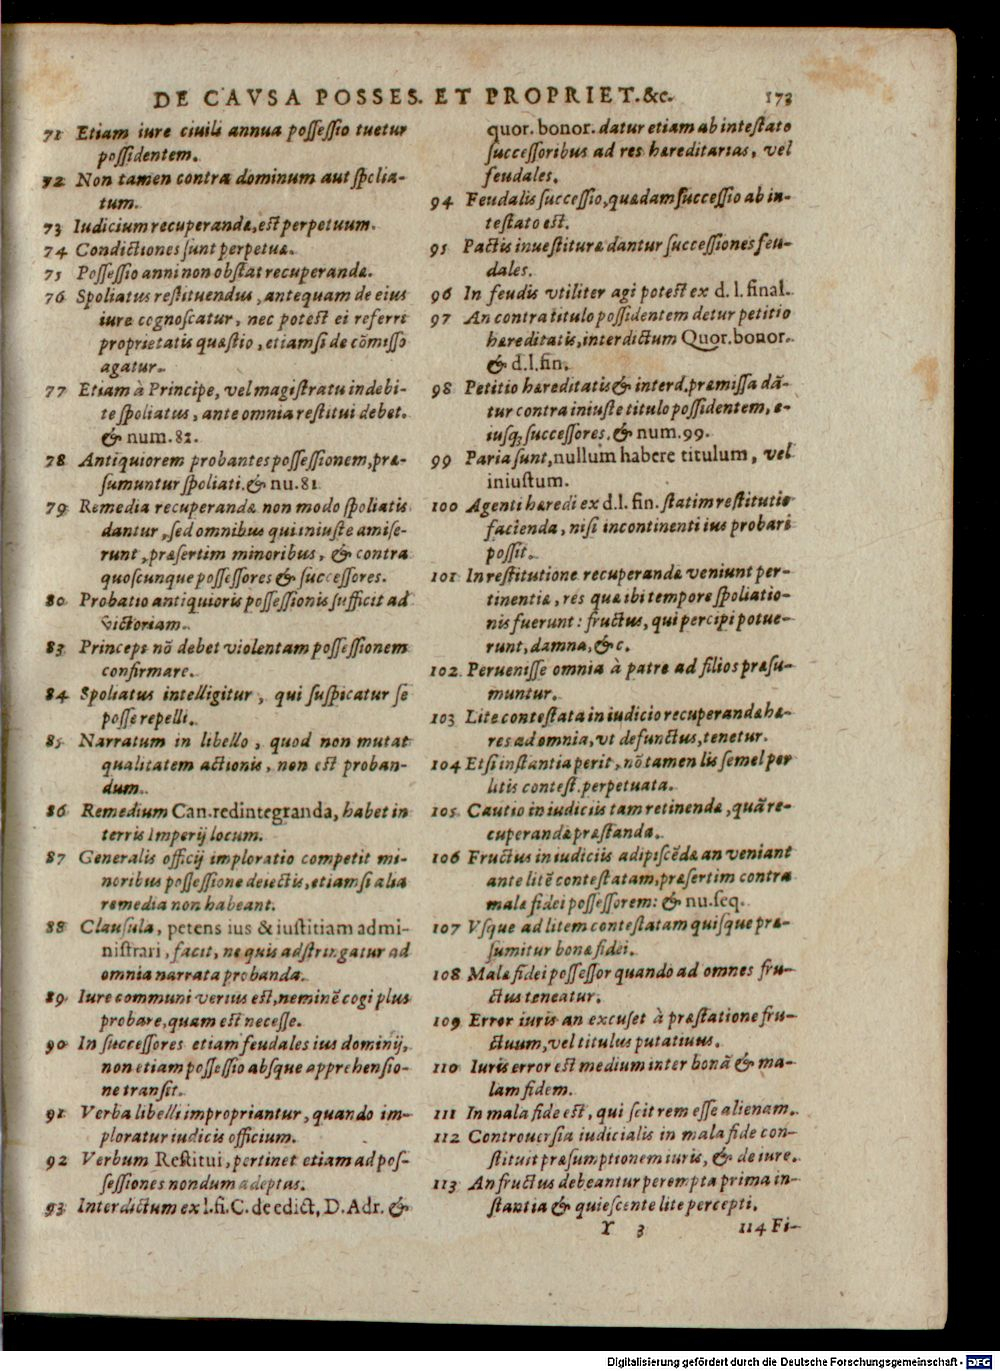 DE CAVSA POSSES. ET PROPRIET. &c. 173
71 Etiam iure ciuili annua possessio tuetur
possidentem.
72 Non tamen contra dominum aut spolia-
tum.
73 Iudicium recuperandæ, est perpetuum.
74 Condictiones sunt perpetuæ.
75 Possessio anni non obstat recuperandæ.
76 Spoliatus restituendus, antequam de eius
iure cognoscatur, nec potest ei referri
proprietatis quæstio, etiamsi de cōmisso
agatur.
77 Etiam à Principe, vel magistratu indebi-
te spoliatus, ante omnia restitui debet.
& num. 82.
78 Antiquiorem probantes possessionem, præ-
sumuntur spoliati. & nu. 81
79 Remedia recuperandæ non modo spoliatis
dantur, sed omnibus qui iniuste amise-
runt, præsertim minoribus, & contra
quoscunque possessores & successores.
80 Probatio antiquioris possessionis sufficit ad
victoriam.
83 Princeps nō debet violentam possessionem
confirmare.
84 Spoliatus intelligitur, qui suspicatur se
posse repelli.
85 Narratum in libello, quod non mutat
qualitatem actionis, non est proban-
dum.
86 Remedium Can. redintegranda, habet in
terris Imperij locum.
87 Generalis officij imploratio competit mi-
noribus possessione deiectis, etiamsi alia
remedia non habeant.
88 Clausula, petens ius & iustitiam admi-
nistrari, facit, ne quis adstringatur ad
omnia narrata probanda.
89 Iure communi verius est, neminē cogi plus
probare, quam est necesse.
90 In successores etiam feudales ius dominij,
non etiam possessio absque apprehensio-
ne transit.
91 Verba libelli impropriantur, quando im-
ploratur iudicis officium.
92 Verbum Restitui, pertinet etiam ad pos-
sessiones nondum adeptas.
93 Interdictum ex l. fi. C. de edict, D. Adr. &
quor. bonor. datur etiam ab intestato
successoribus ad res hæreditarias, vel
feudales.
94 Feudalis successio, quædam successio ab in-
testato est.
95 Pactis inuestituræ dantur successiones feu-
dales.
96 In feudis vtiliter agi potest ex d. l. final.
97 An contra titulo possidentem detur petitio
hæreditatis, interdictum Quor. bonor.
& d. l. fin.
98 Petitio hæreditatis & interd. præmissa dā-
tur contra iniuste titulo possidentem, e-
iusq; successores. & num. 99.
99 Paria sunt, nullum habere titulum, vel
iniustum.
100 Agenti hæredi ex d. l. fin. statim restitutio
facienda, nisi incontinenti ius probari
possit.
101 In restitutione recuperandæ veniunt per-
tinentiæ, res quæ ibi tempore spoliatio-
nis fuerunt: fructus, qui percipi potue-
runt, damna, &c.
102 Peruenisse omnia à patre ad filios præsu-
muntur.
103 Lite contestata in iudicio recuperandæ hæ-
res ad omnia, vt defunctus, tenetur.
104 Etsi instantia perit, nō tamen lis semel per
litis contest. perpetuata.
105 Cautio in iudiciis tam retinendæ, quā re-
cuperandæ præstanda.
106 Fructus in iudiciis adipiscēdæ an veniant
ante litē contestatam, præsertim contra
malæ fidei possessorem: & nu. seq.
107 Vsque ad litem contestatam quisque præ-
sumitur bonæ fidei.
108 Malæ fidei possessor quando ad omnes fru-
ctus teneatur.
109 Error iuris an excuset à præstatione fru-
ctuum, vel titulus putatiuus.
110 Iuris error est medium inter bonā & ma-
lam fidem.
111 In mala fide est, qui scit rem esse alienam.
112 Controuersia iudicialis in mala fide con-
stituit præsumptionem iuris, & de iure.
113 An fructus debeantur perempta prima in-
stantia & quiescente lite percepti.
Y 3 114 Fi-
Digitalisierung gefördert durch die Deutsche Forschungsgemeinschaft - DFG